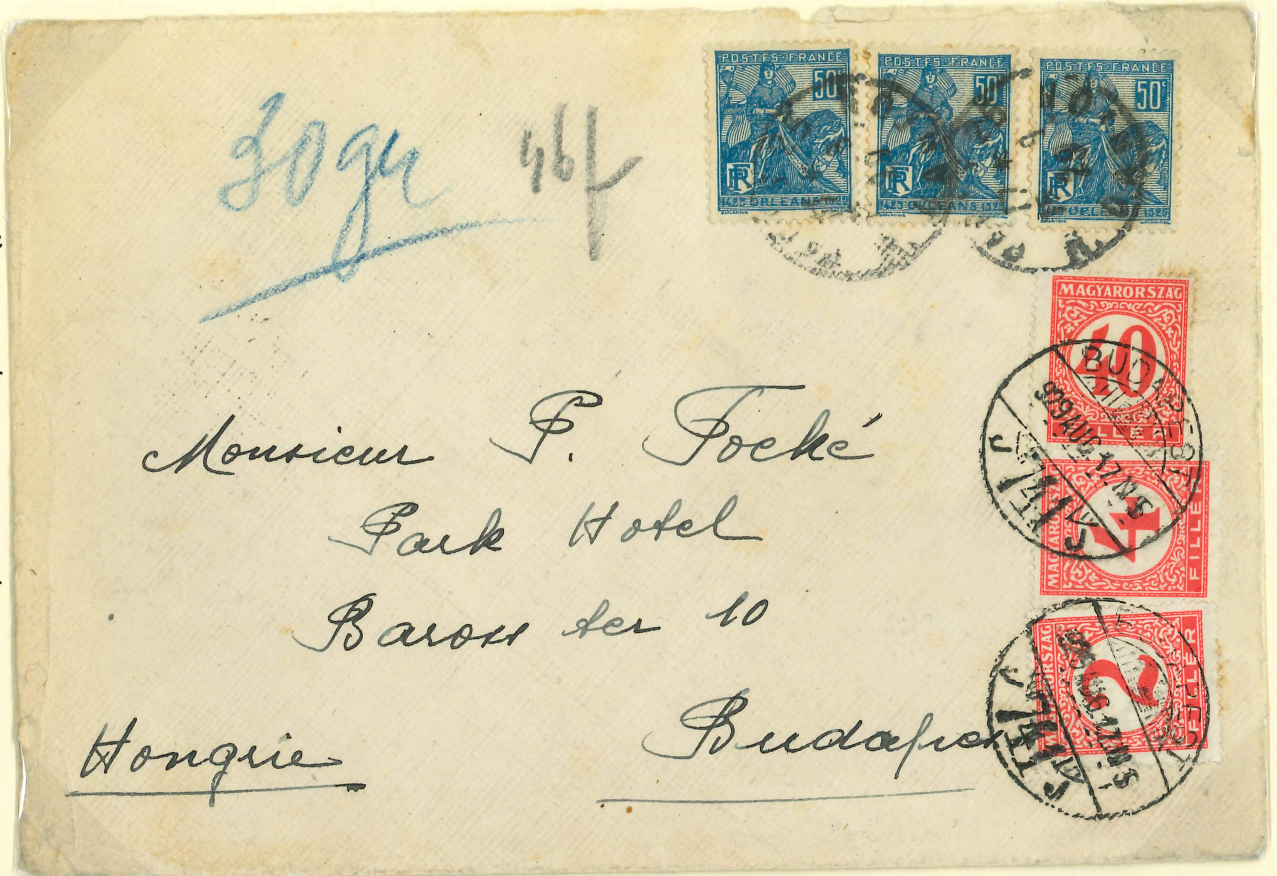 30 gr
46f
POSTES-FRANCE 50c
RF
1429 ORLEANS 1929
POSTES-FRANCE 50c
RF
1429 ORLEANS 1929
POSTES-FRANCE 50c
RF
ORLEANS 1929
MAGYARORSZÁG
40
FILLÉR
BUDAPEST
929 AUG 17
MAGYARORSZÁG
4
FILLÉR
MAGYARORSZÁG
2
FILLÉR
Monsieur P. Focké
Park Hotel
Baross ter 10
Budapest
Hongrie